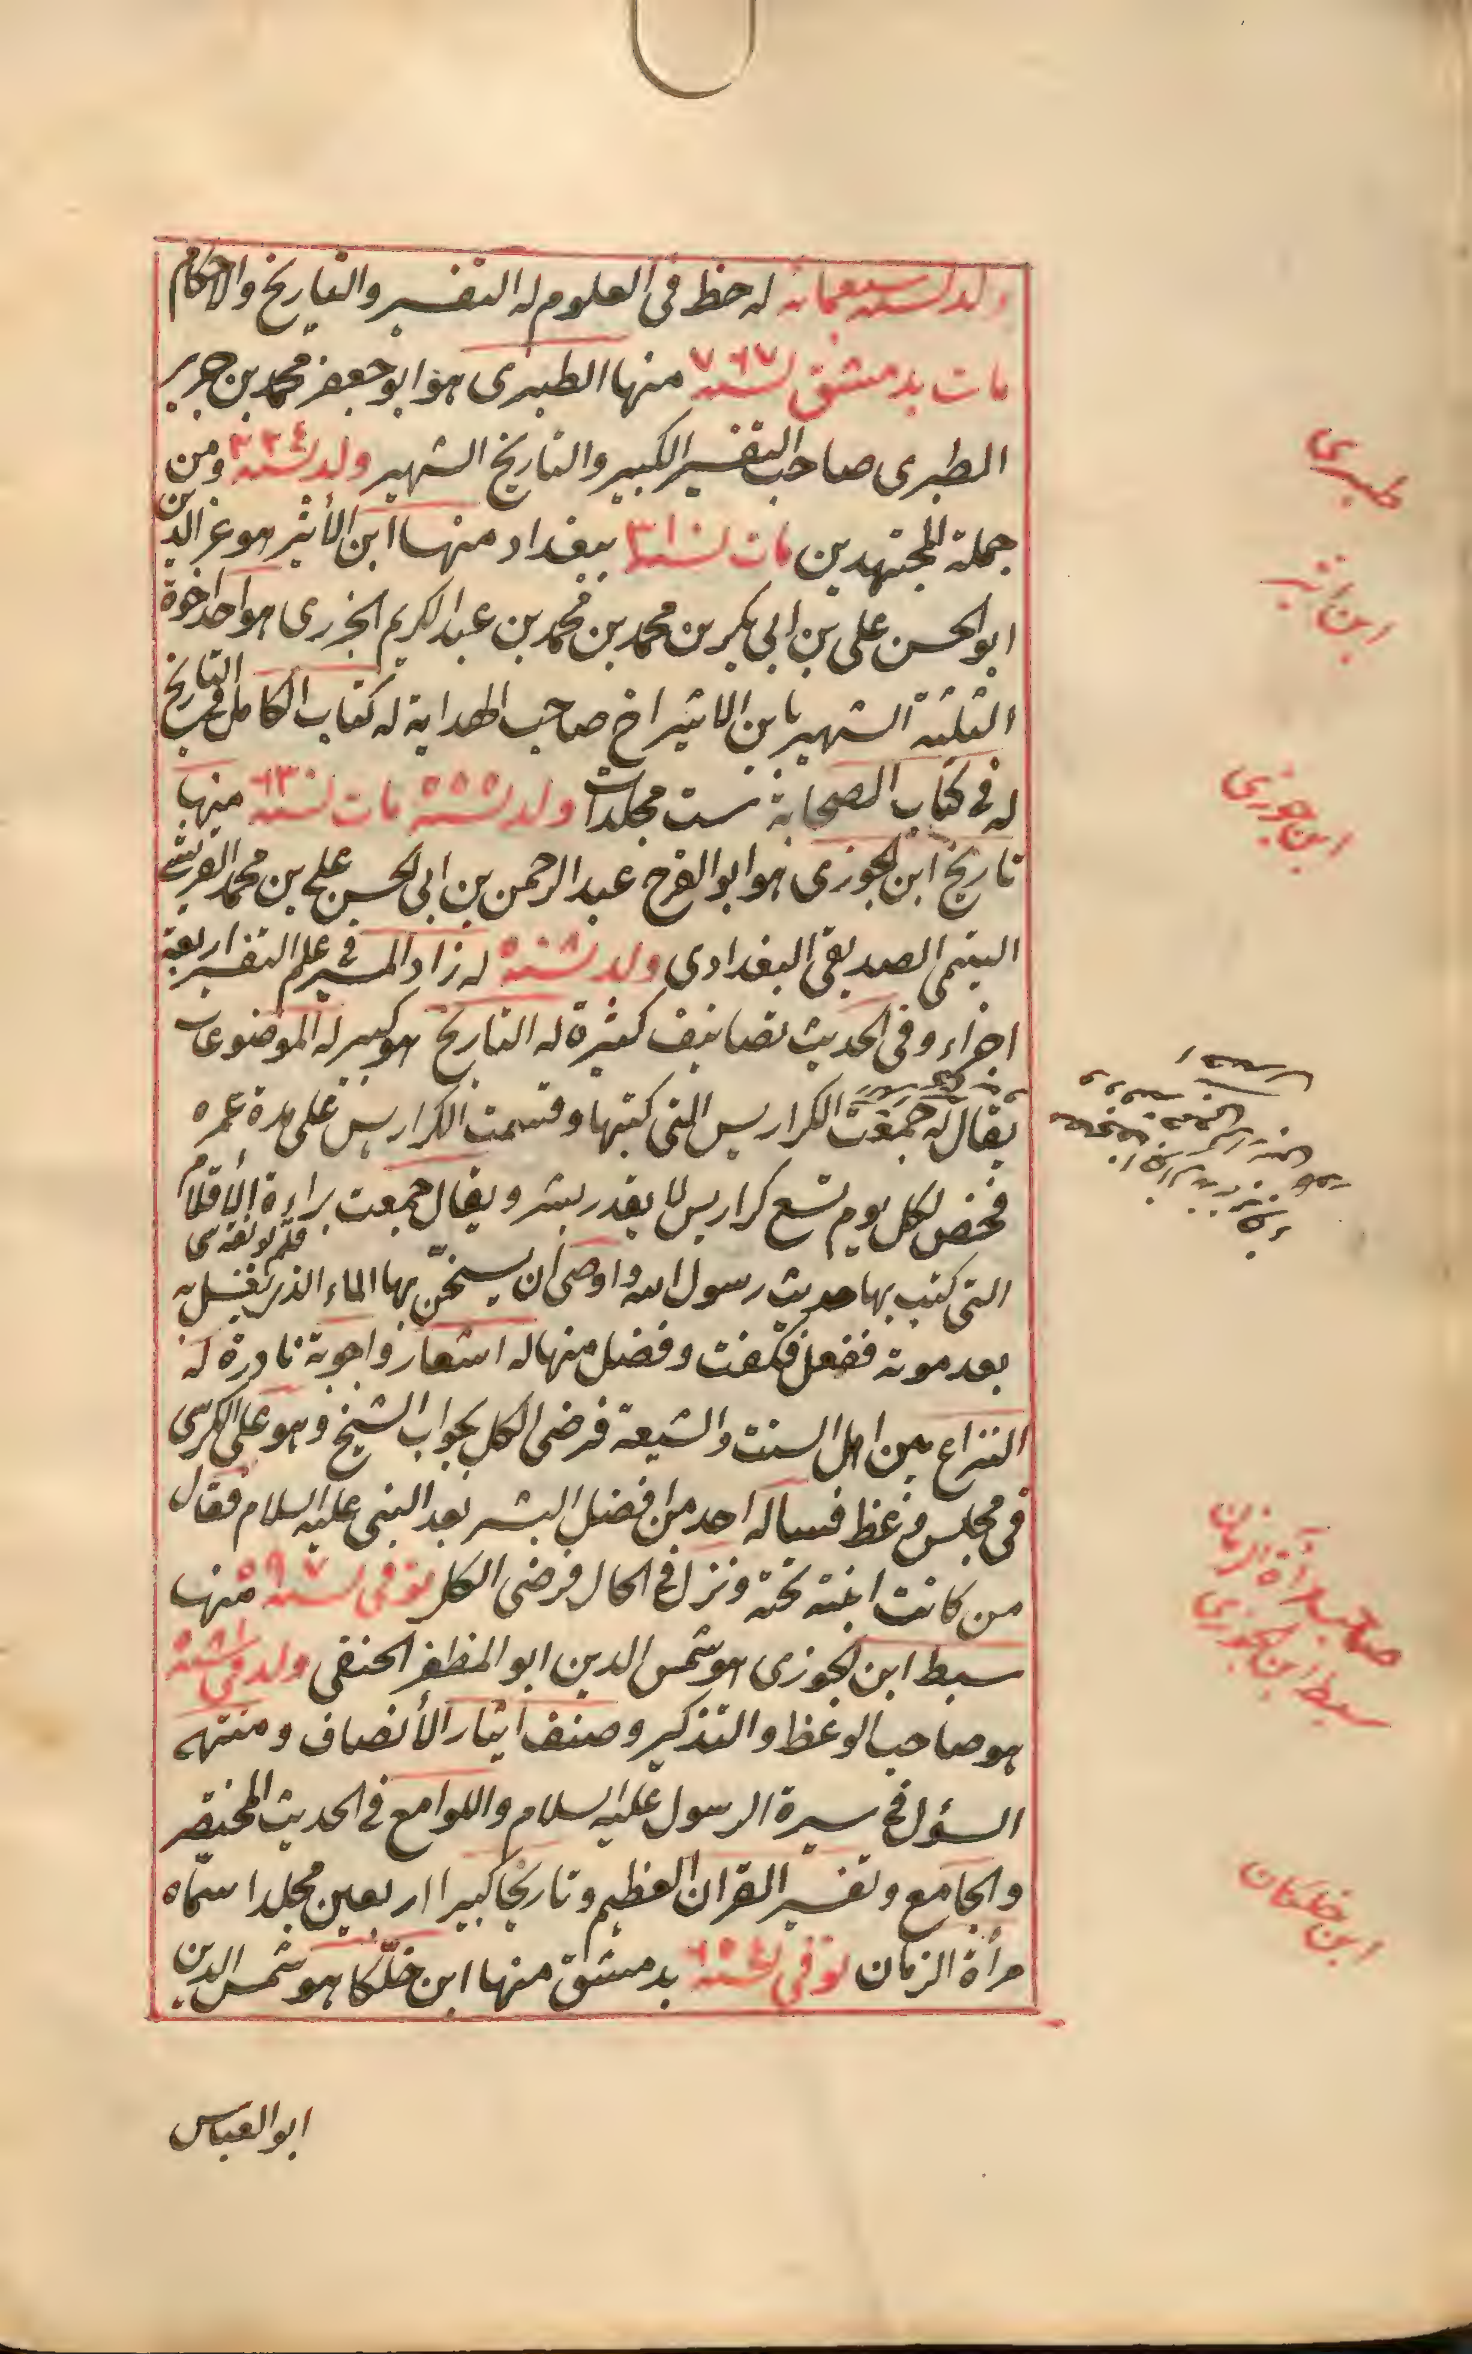 ولد لسنه سبعمائة له حظ فى العلوم له التفسير والتاريخ والاحكام
مات بدمشق لسنه ٧٦٧ منها الطبرى هو ابو جعفر محمد بن جرير
الطبرى صاحب التفسير الكبير والتاريخ الشهير ولد لسنه ٢٢٤ ومن
جملة المجتهدين مات لسنه ٣١٠ ببغداد منها ابن الأثير هو عز الدين
ابو الحسن على بن ابى بكر بن محمد بن محمد بن عبد الكريم الجزرى هو احد اخوة
الثلثة الشهير بابن الاثير اخ صاحب الهداية له كتاب الكامل فى التاريخ
له فى كتاب الصحابة ست مجلدات ولد لسنه ٥٥٥ مات لسنه ٦٣٠ منها
تاريخ ابن الجوزى هو ابو الفرج عبد الرحمن بن ابى الحسن على بن محمد القرشى
التيمى الصديقى البغدادى ولد لسنه ٥٠٨ له زاد المسير فى علم التفسير اربعة
اجزاء وفى الحديث تصانيف كثيرة له التاريخ هو كبير له الموضوعات
يقال له جمعت الكراريس التى كتبها وقسمت الكراريس على مدة عمره
فخض لكل يوم تسع كراريس لا يقدر بشر ويقال جمعت براءة الأقلام
التى كتب بها حديث رسول الله واوصى ان يسخّن بها الماء الذى يغسل به
بعد موته ففعل فكفت وفضل منها له اشعار واجوبة نادرة له
النزاع بين اهل السنت والشيعة فرضى الكل بجواب الشيخ وهو على الكرسى
فى مجلس وعظ فساله احد من افضل البشر بعد النبى عليه السلام فقال
من كانت ابنته تحته ونزل فى الحال فرضى الكل توفى لسنه ٥٩٧ منها
سبط ابن الجوزى هو شمس الدين ابو المظفر الحنفى ولد فى لسنه ٥٨١
هو صاحب الوعظ والتذكير وصنف ايثار الأنصاف ومنتهى
السؤل فى سيرة الرسول عليه السلام واللوامع فى الحديث المختصر
والجامع وتفسير القران العظيم وتاريخا كبيرا اربعين مجلدا سمّاه
مرأة الزمان توفى لسنه ٦٥٤ بدمشق منها ابن خلّكا هو شمس الدين
ابو العباس
طبرى
ابن اثير
ابن جوزى
صاحب مرآة الزمان
سبط ابن الجوزى
ابن خلكان